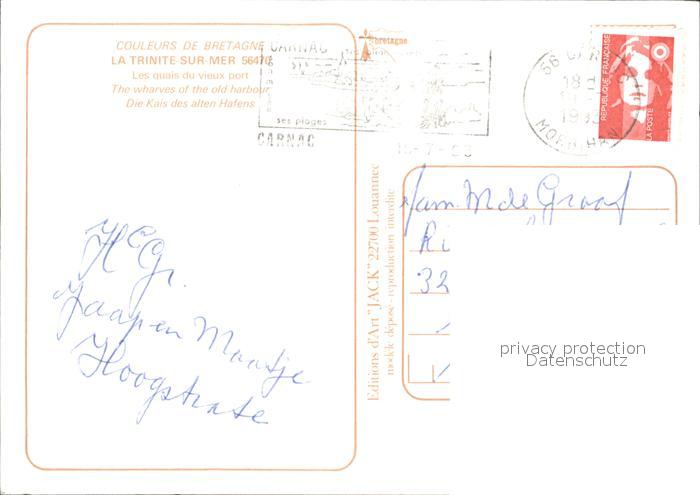 COULEURS DE BRETAGNE
LA TRINITE-SUR-MER 56470
Les quais du vieux port
The wharves of the old harbour
Die Kais des alten Hafens
CARNAC
ses plages
CARNAC
bretagne
18-7-93
56 CARNAC
18 H
1993
MORBIHAN
REPUBLIQUE FRANÇAISE
LA POSTE
Editions d'Art "JACK" 22700 Louannec
modèle déposé - reproduction interdite
Fam. M de Graaf
Ri
32
H Gr.
Jaap en Maatje
Hoogstrate
privacy protection
Datenschutz